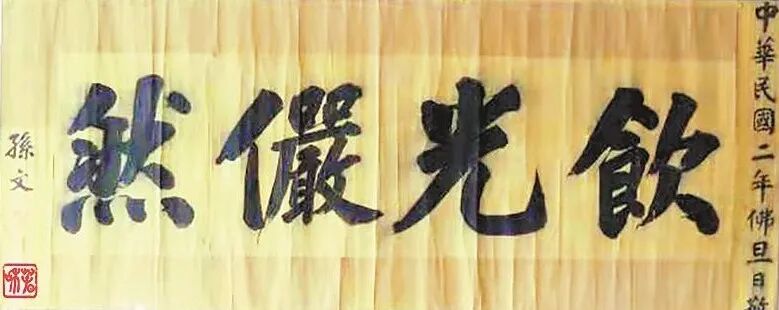 中華民國二年佛旦日敬
飲光儼然
孫文